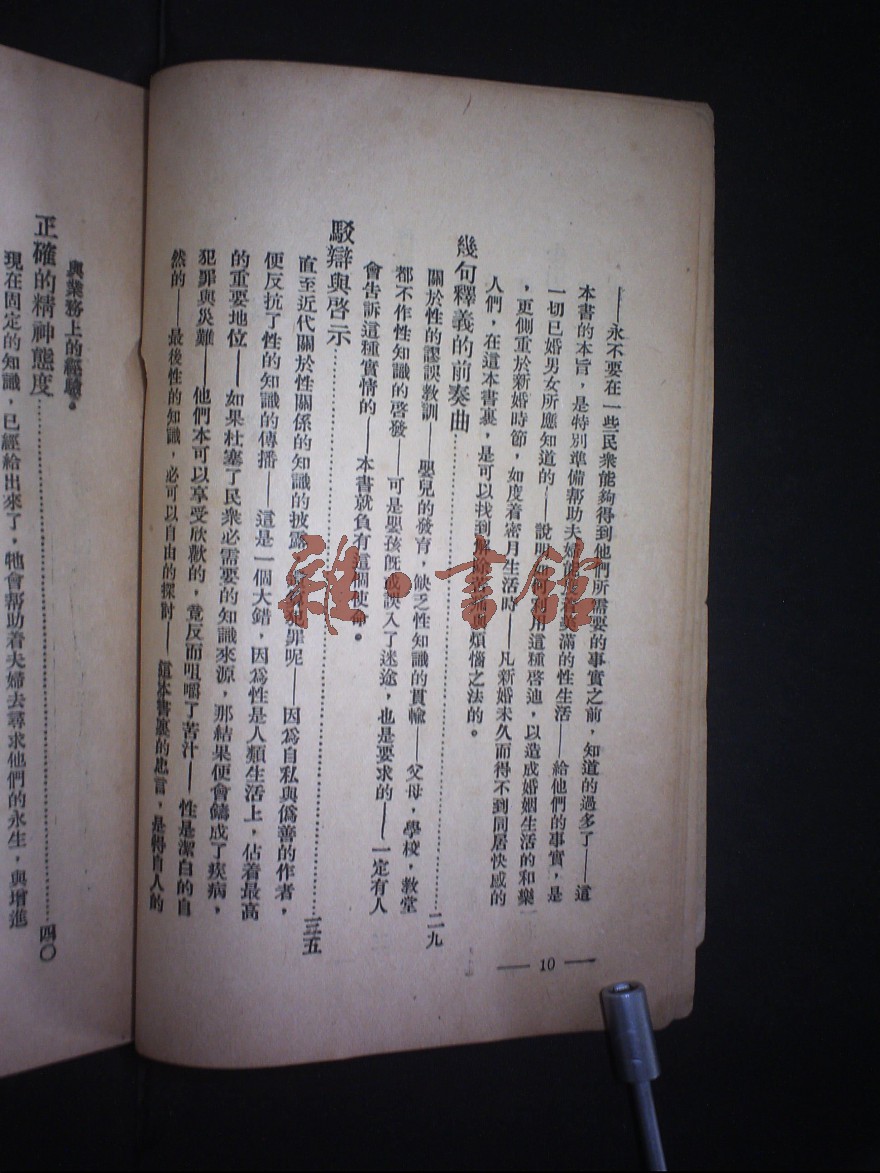 ——永不要在一些民衆能夠得到他們所需要的事實之前，知道的過多了——這
本書的本旨，是特別準備帮助夫婦美滿的性生活——給他們的事實，是
一切已婚男女所應知道的——說明如何利用這種啓迪，以造成婚姻生活的和樂
，更側重於新婚時節，如度着密月生活時——凡新婚未久而得不到同居快感的
人們，在這本書裏，是可以找到解除苦痛與煩惱之法的。
幾句釋義的前奏曲……二九
關於性的謬誤教訓——嬰兒的發育，缺乏性知識的貫輸——父母，學校，教堂
都不作性知識的啓發——可是嬰孩旣或誤入了迷途，也是要求的——一定有人
會告訴這種實情的——本書就負有這個使命。
駁辯與啓示……三五
直至近代關於性關係的知識的披露，犯罪呢——因爲自私與僞善的作者，
便反抗了性的知識的傳播——這是一個大錯，因爲性是人類生活上，佔着最高
的重要地位——如果杜塞了民衆必需要的知識來源，那結果便會鑄成了疾病，
犯罪與災難——他們本可以享受欣歡的，竟反而咀嚼了苦汁——性是潔白的自
然的——最後性的知識，必可以自由的探討——這本書裏的忠言，是得自人的
— 10 —
與業務上的經驗。
正確的精神態度……四〇
現在固定的知識，已經給出來了，牠會帮助着夫婦去尋求他們的永生，與增進
雜·書館